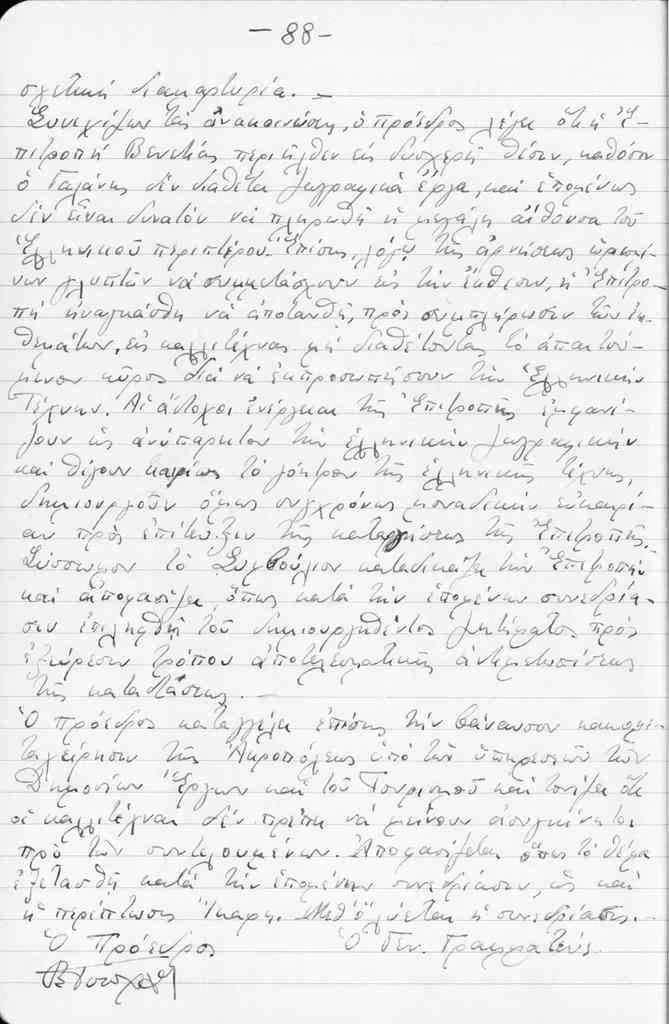 - 88 -
σχετική διαμαρτυρία. –
Συνεχίζων τάς ἀνακοινώσεις, ὁ πρόεδρος λέγει ὅτι ἡ Ἐ-
πιτροπή Βενετίας περιῆλθεν εἰς δυσχερῆ θέσιν, καθόσον
ὁ Γαλάνης δέν διαθέτει ζωγραφικά ἔργα, καί ἑπομένως
δέν εἶναι δυνατόν νά πληρωθῇ ἡ μεγάλη αἴθουσα τοῦ
Ἑλληνικοῦ περιπτέρου. Ἐπίσης, λόγῳ τῆς ἀρνήσεως ὡρισμέ-
νων γλυπτῶν νά συμμετάσχουν εἰς τήν ἔκθεσιν, ἡ Ἐπιτρο-
πή ἠναγκάσθη νά ἀποτανθῇ, πρός συμπλήρωσιν τῶν ἐκ-
θεμάτων, εἰς καλλιτέχνας μή διαθέτοντας τό ἀπαιτού-
μενον κῦρος διά νά ἐκπροσωπήσουν τήν Ἑλληνικήν
Τέχνην. Αἱ ἄστοχοι ἐνέργειαι τῆς Ἐπιτροπῆς ἐμφανί-
ζουν ὡς ἀνύπαρκτον τήν ἑλληνικήν ζωγραφικήν
καί θίγουν καιρίως τό γόητρον τῆς ἑλληνικῆς τέχνης,
δημιουργοῦν ὅμως συγχρόνως μοναδικήν εὐκαιρί-
αν πρός ἐπίτευξιν τῆς καταργήσεως τῆς Ἐπιτροπῆς.
Σύσσωμον τό Συμβούλιον καταδικάζει τήν Ἐπιτροπήν
καί ἀποφασίζει, ὅπως κατά τήν ἑπομένην συνεδρία-
σιν ἐπιληφθῇ τοῦ δημιουργηθέντος ζητήματος πρός
ἐξεύρεσιν τρόπου ἀποτελεσματικῆς ἀντιμετωπίσεως
τῆς καταστάσεως. –
Ὁ πρόεδρος καταγγέλει ἐπίσης τήν βάναυσον κακομε-
ταχείρησιν τῆς Ἀκροπόλεως ὑπό τῶν ὑπηρεσιῶν τῶν
Δημοσίων Ἔργων καί τοῦ Τουρισμοῦ καί τονίζει ὅτι
οἱ καλλιτέχναι δέν πρέπει νά μείνουν ἀσυγκίνητοι
πρό τῶν συντελουμένων. Ἀποφασίζεται ὅπως τό θέμα
ἐξετασθῇ κατά τήν ἑπομένην συνεδρίασιν, ὡς καί
ἡ περίπτωσις Ἴκαρη. Μεθ' ὅ λύεται ἡ συνεδρίασις. –
Ὁ Πρόεδρος Ὁ Γεν. Γραμματεύς